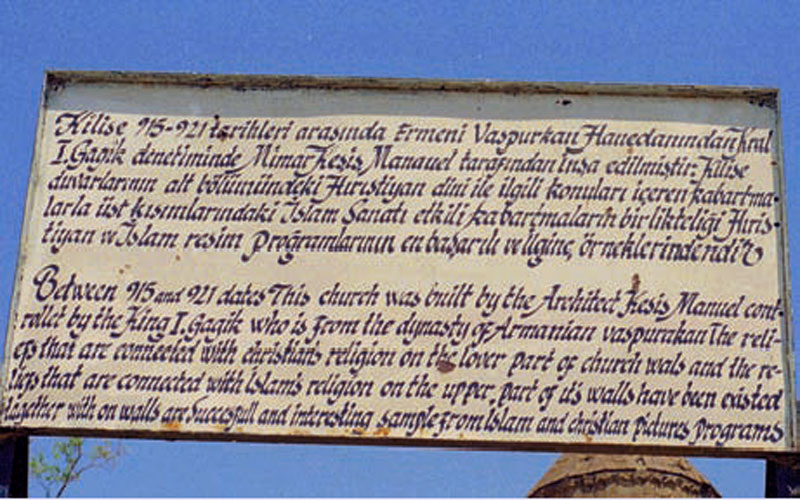 Kilise 915-921 tarihleri arasında Ermeni Vaspurkan Hanedanından Kral
I. Gagik denetiminde Mimar Keşiş Manauel tarafından inşa edilmiştir. Kilise
duvarlarının alt bölümündeki Hıristiyan dini ile ilgili konuları içeren kabartma-
larla üst kısımlarındaki İslam Sanatı etkili kabartmaların birlikteliği Hıris-
tiyan ve İslam resim programlarının en başarılı ve ilginç, örneklerindendir
Between 915 and 921 dates This church was built by the Architect Kesis Manuel cont-
rollet by the King I. Gagik who is from the dynasty of Armanian vaspurakan The reli-
efs that are connected with christians religion on the lover part of church wals and the re-
liefs that are connected with islams religion on the upper, part of it's walls have been existed
together with on walls are Succesfull and interesting sample from Islam and christian pictures programs